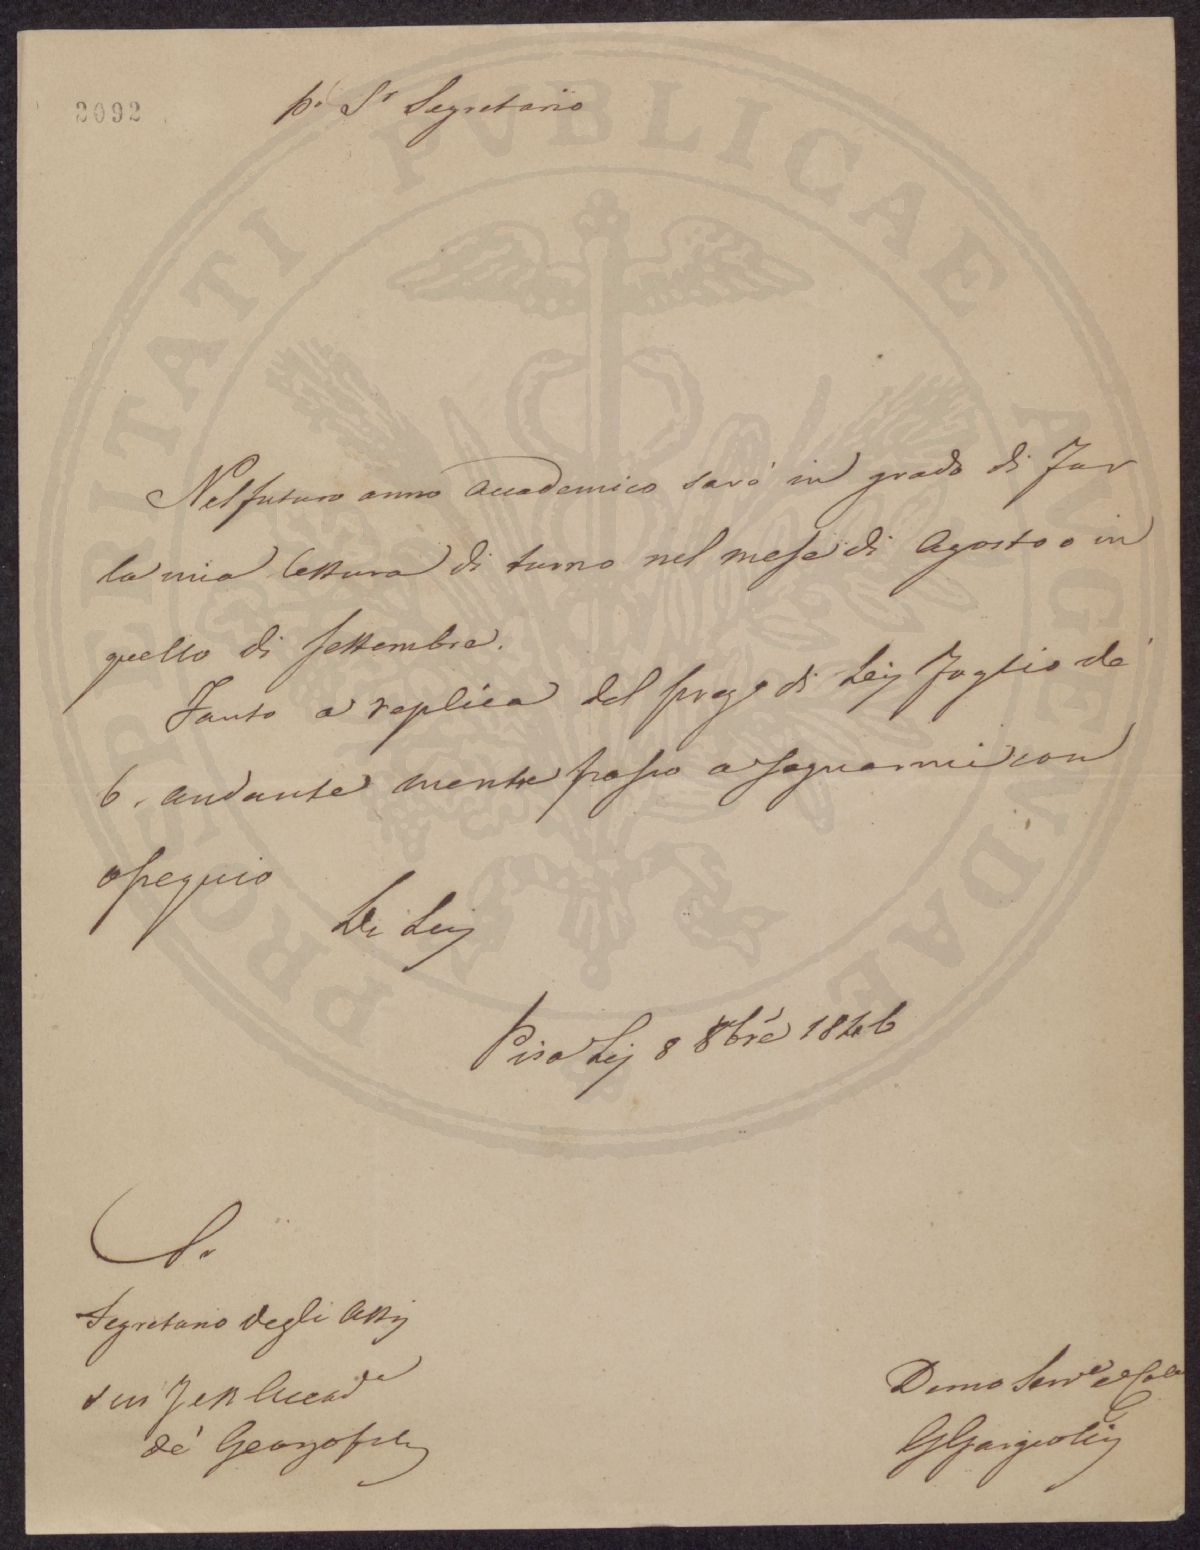 2092
Sr Segretario
Nel futuro anno Accademico sarò in grado di far
la mia lettura di turno nel mese di Agosto o in
quello di Settembre.
Tanto a replica del preg° di Lei foglio de'
6. andante mentre passo a segnarmi con
ossequio
Di Lei
Pisa Li 8 8bre 1846
Sr
Segretario degli Atti
dell Accade
de' Georgofili
Devmo Serve e Colla
G Gargiolli
PROSPERITATI PVBLICAE AVGENDAE